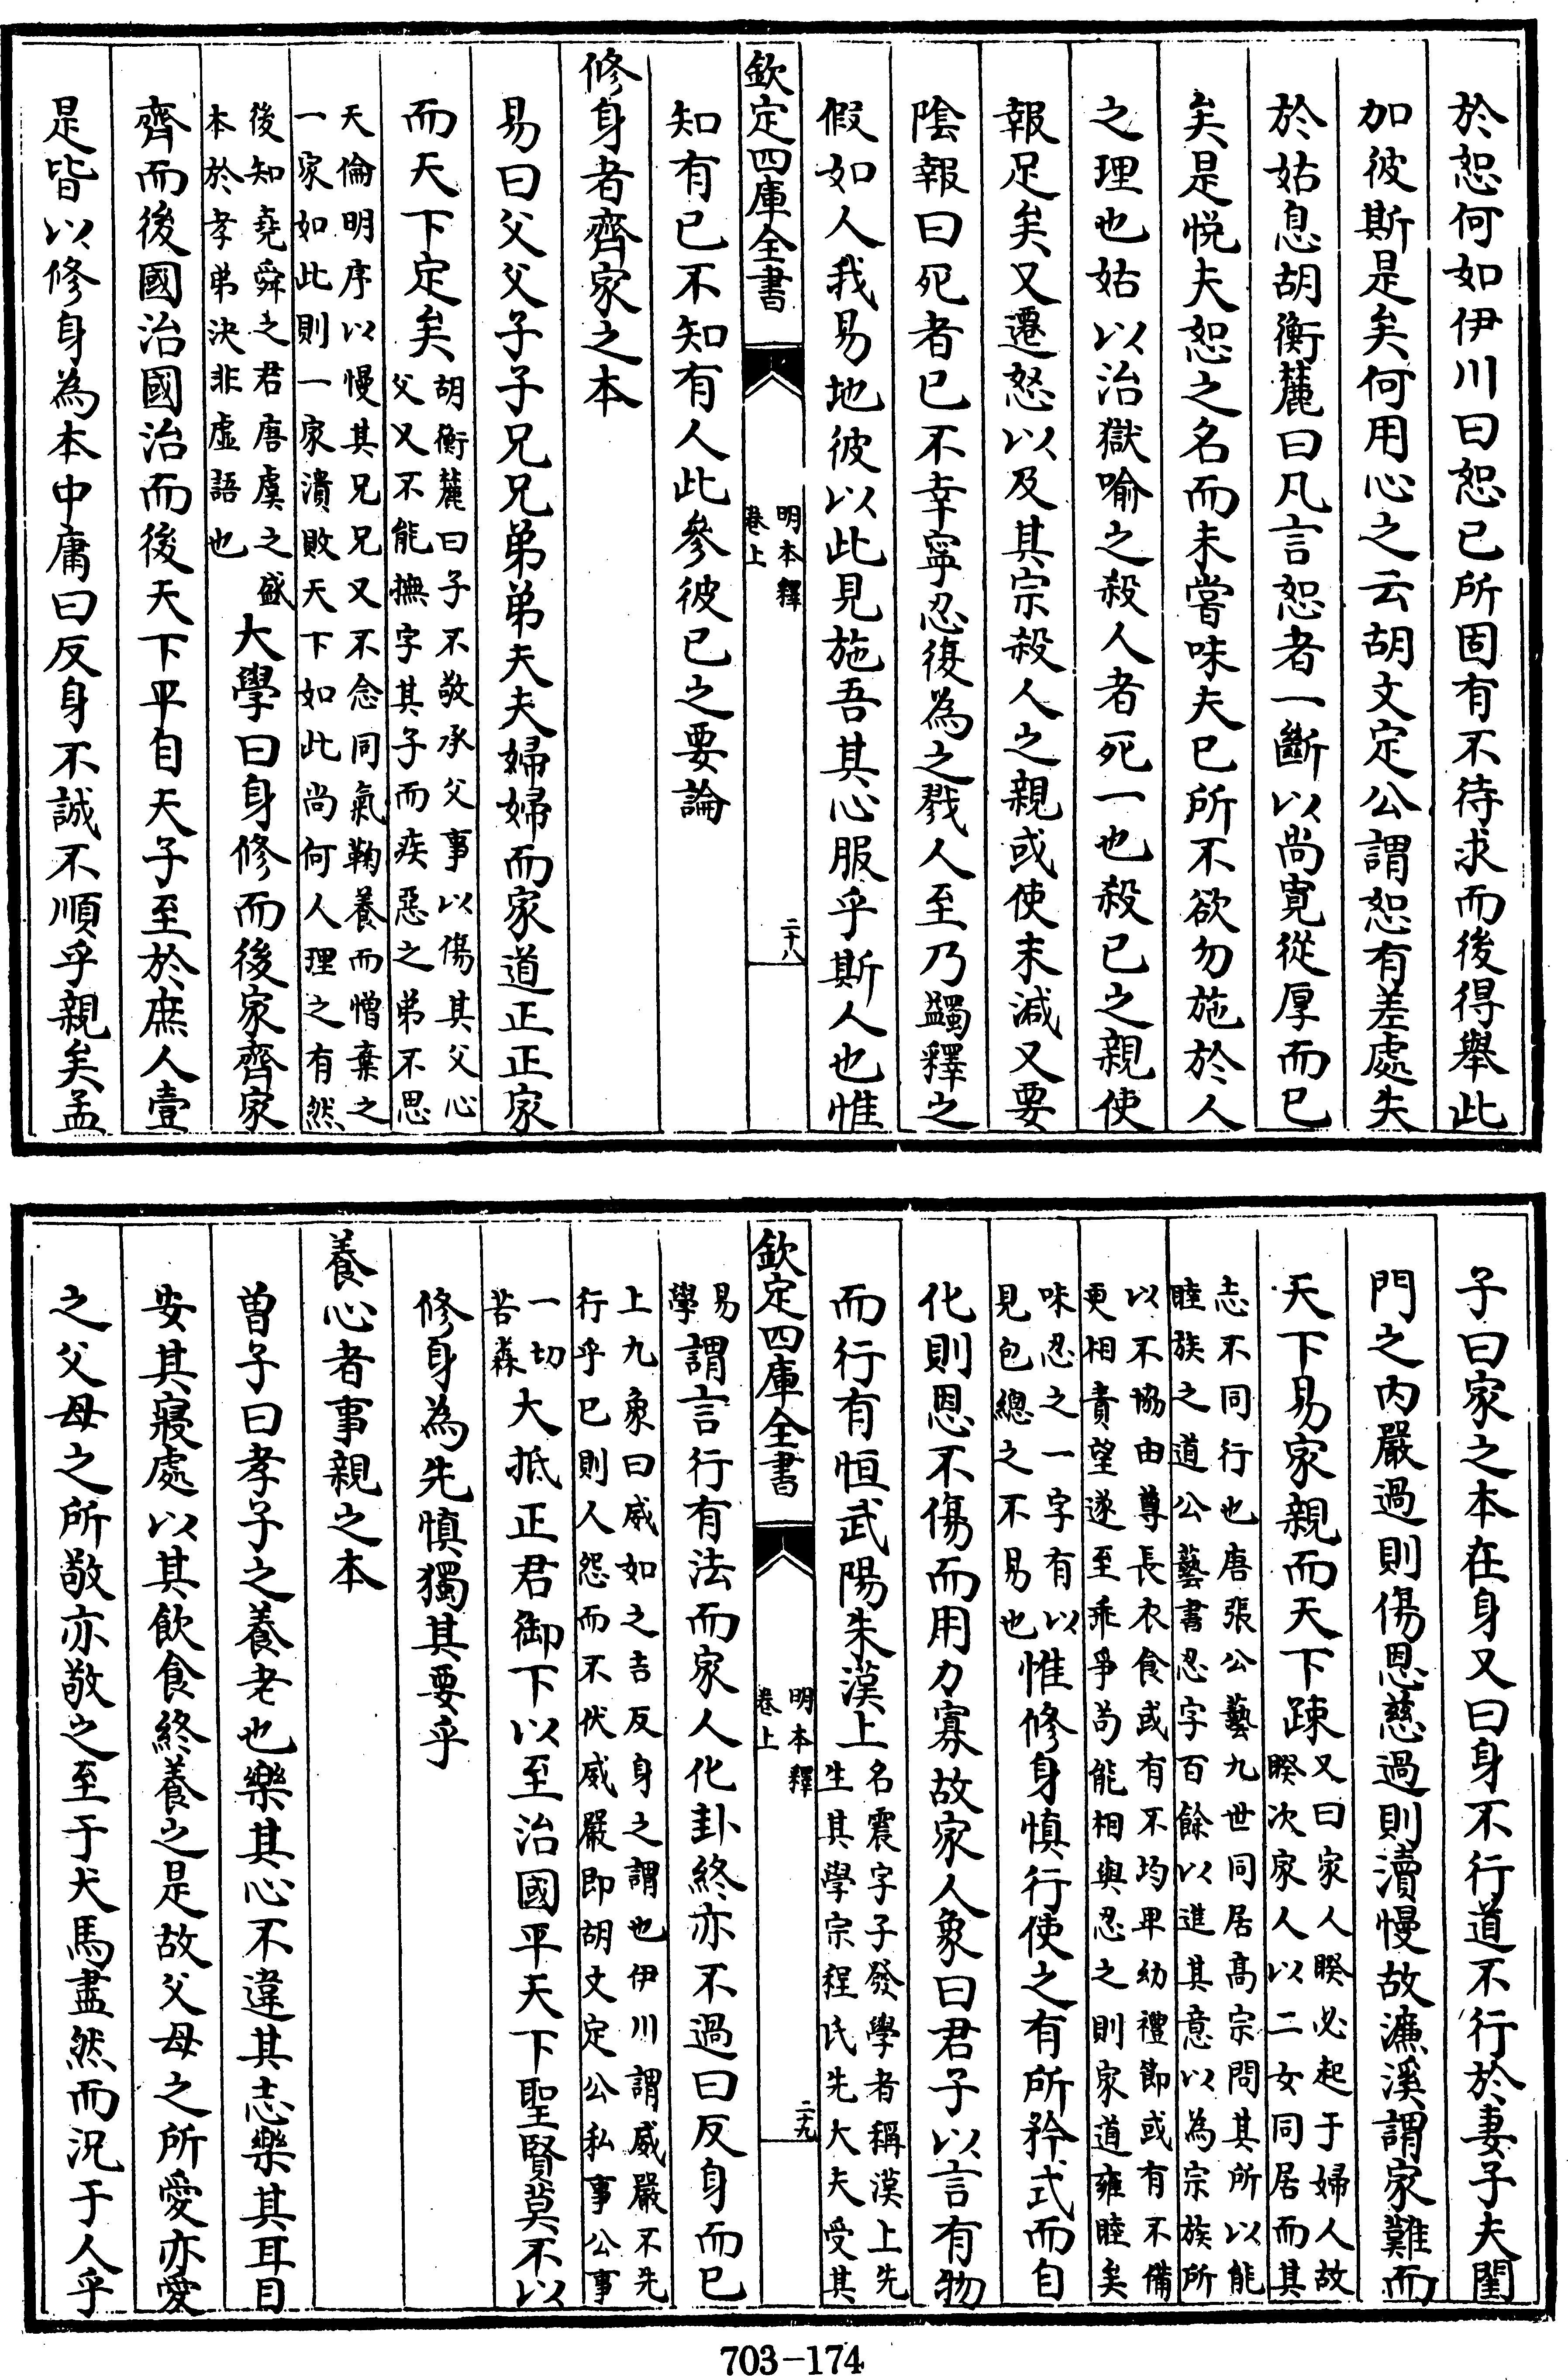 於恕何如伊川曰恕已所固有不待求而後得舉此
加彼斯是矣何用心之云胡文定公謂恕有差處失
於姑息胡衡麓曰凡言恕者一斷以尚寛從厚而已
矣是悦夫恕之名而未嘗味夫已所不欲勿施於人
之理也姑以治獄喻之殺人者死一也殺已之親使
報足矣又遷怒以及其宗殺人之親或使末減又要
陰報曰死者已不幸寧忍復為之戮人至乃蠲釋之
假如人我易地彼以此見施吾其心服乎斯人也惟
欽定四庫全書
明本釋
卷上
二十八
知有已不知有人此參彼已之要論
修身者齊家之本
易曰父父子子兄兄弟弟夫夫婦婦而家道正正家
而天下定矣
胡衡麓曰子不敬承父事以傷其父心
父又不能撫字其子而疾惡之弟不思
天倫明序以慢其兄兄又不念同氣鞠養而憎棄之
一家如此則一家潰敗天下如此尚何人理之有然
後知堯舜之君唐虞之盛
本於孝弟決非虛語也
大學曰身修而後家齊家
齊而後國治國治而後天下平自天子至於庶人壹
是皆以修身為本中庸曰反身不誠不順乎親矣孟
子曰家之本在身又曰身不行道不行於妻子夫閨
門之内嚴過則傷恩慈過則瀆慢故濂溪謂家難而
天下易家親而天下疎
又曰家人睽必起于婦人故
睽次家人以二女同居而其
志不同行也唐張公藝九世同居髙宗問其所以能
睦族之道公藝書忍字百餘以進其意以為宗族所
以不協由尊長衣食或有不均卑幼禮節或有不備
更相責望遂至乖爭苟能相與忍之則家道雍睦矣
味忍之一字有以
見包總之不易也
惟修身慎行使之有所矜式而自
化則恩不傷而用力寡故家人象曰君子以言有物
而行有恒武陽朱漢上
名震字子發學者稱漢上先
生其學宗程氏先大夫受其
欽定四庫全書
明本釋
卷上
二十九
易
學
謂言行有法而家人化卦終亦不過曰反身而已
上九象曰威如之吉反身之謂也伊川謂威嚴不先
行乎已則人怨而不伏威嚴即胡文定公私事公事
一切
苦森
大抵正君御下以至治國平天下聖賢莫不以
修身為先慎獨其要乎
養心者事親之本
曽子曰孝子之養老也樂其心不違其志樂其耳目
安其寢處以其飲食終養之是故父母之所愛亦愛
之父母之所敬亦敬之至于犬馬盡然而況于人乎
703-174